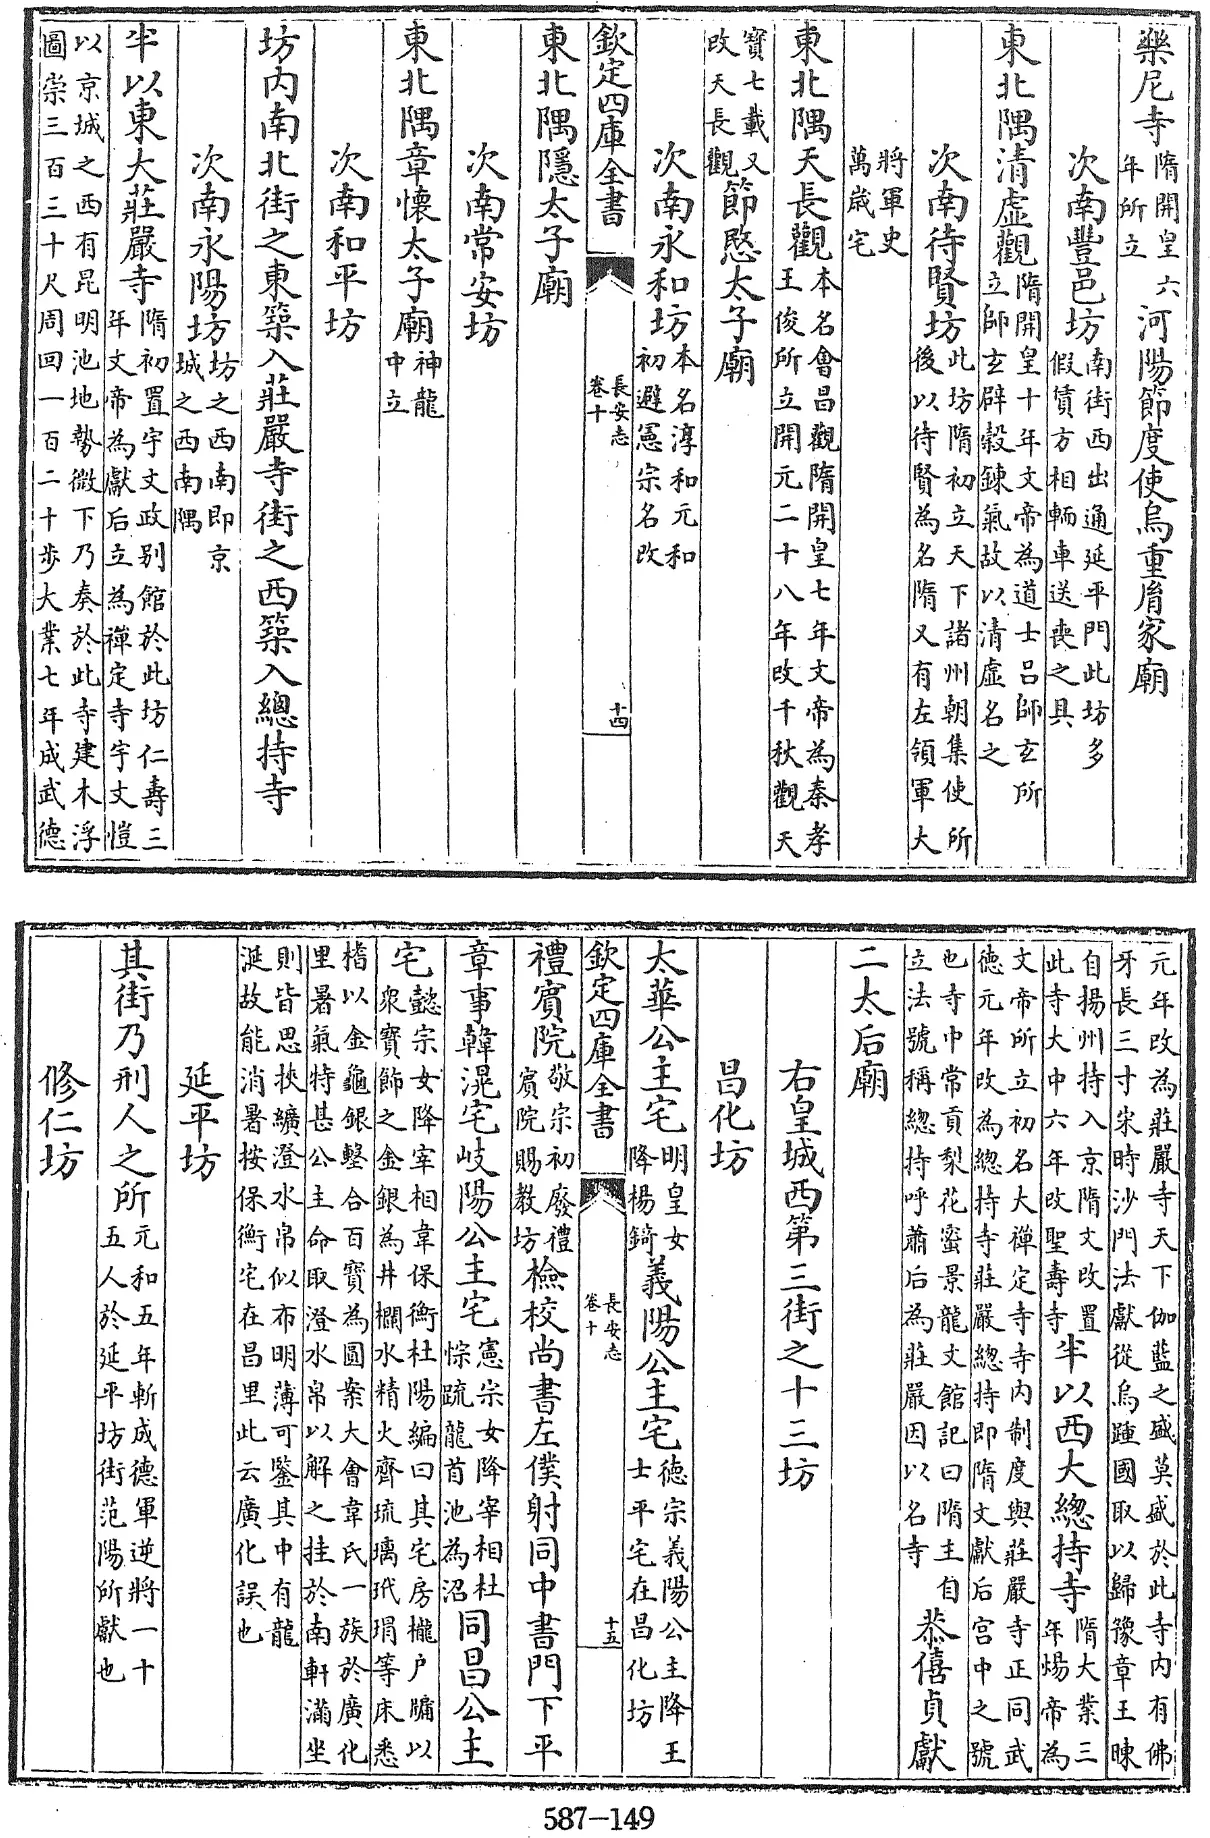 樂尼寺隋開皇六年所立河陽節度使烏重胤家廟
次南豐邑坊南街西出通延平門此坊多假賃方相輀車送喪之具
東北隅清虛觀隋開皇十年文帝為道士呂師玄所立師玄辟穀鍊氣故以清虛名之
次南待賢坊此坊隋初立天下諸州朝集使所後以待賢為名隋又有左領軍大
將軍史萬歲宅
東北隅天長觀本名會昌觀隋開皇七年文帝為秦孝王俊所立開元二十八年改千秋觀天
寶七載又改天長觀節愍太子廟
次南永和坊本名淳和元和初避憲宗名改
欽定四庫全書 長安志 卷十 十四
東北隅隱太子廟
次南常安坊
東北隅章懷太子廟神龍中立
次南和平坊
坊内南北街之東築入莊嚴寺街之西築入總持寺
次南永陽坊坊之西南即京城之西南隅
半以東大莊嚴寺隋初置宇文政别館於此坊仁壽三年文帝為獻后立為禪定寺宇文愷
以京城之西有昆明池地勢微下乃奏於此寺建木浮圖崇三百三十尺周回一百二十步大業七年成武德
元年改為莊嚴寺天下伽藍之盛莫盛於此寺内有佛牙長三寸宋時沙門法獻從烏踵國取以歸豫章王暕
自揚州持入京隋文改置此寺大中六年改聖壽寺半以西大總持寺隋大業三年煬帝為
文帝所立初名大禪定寺寺内制度與莊嚴寺正同武德元年改為總持寺莊嚴總持即隋文獻后宫中之號
也寺中常貢梨花蜜景龍文館記曰隋主自立法號稱總持呼蕭后為莊嚴因以名寺恭僖貞獻
二太后廟
右皇城西第三街之十三坊
昌化坊
太華公主宅明皇女降楊錡義陽公主宅德宗義陽公主降王士平宅在昌化坊
欽定四庫全書 長安志 卷十 十五
禮賓院敬宗初廢禮賓院賜教坊檢校尚書左僕射同中書門下平
章事韓滉宅岐陽公主宅憲宗女降宰相杜悰疏龍首池為沼同昌公主
宅懿宗女降宰相韋保衡杜陽編曰其宅房櫳户牖以衆寶飾之金銀為井欄水精火齊琉璃玳瑁等床悉
㮇以金龜銀螯合百寶為圓案大會韋氏一族於廣化里暑氣特甚公主命取澄水帛以解之挂於南軒滿坐
則皆思挾纊澄水帛似布明薄可鑒其中有龍涎故能消暑按保衡宅在昌里此云廣化誤也
延平坊
其街乃刑人之所元和五年斬成德軍逆將一十五人於延平坊街范陽所獻也
修仁坊
587-149